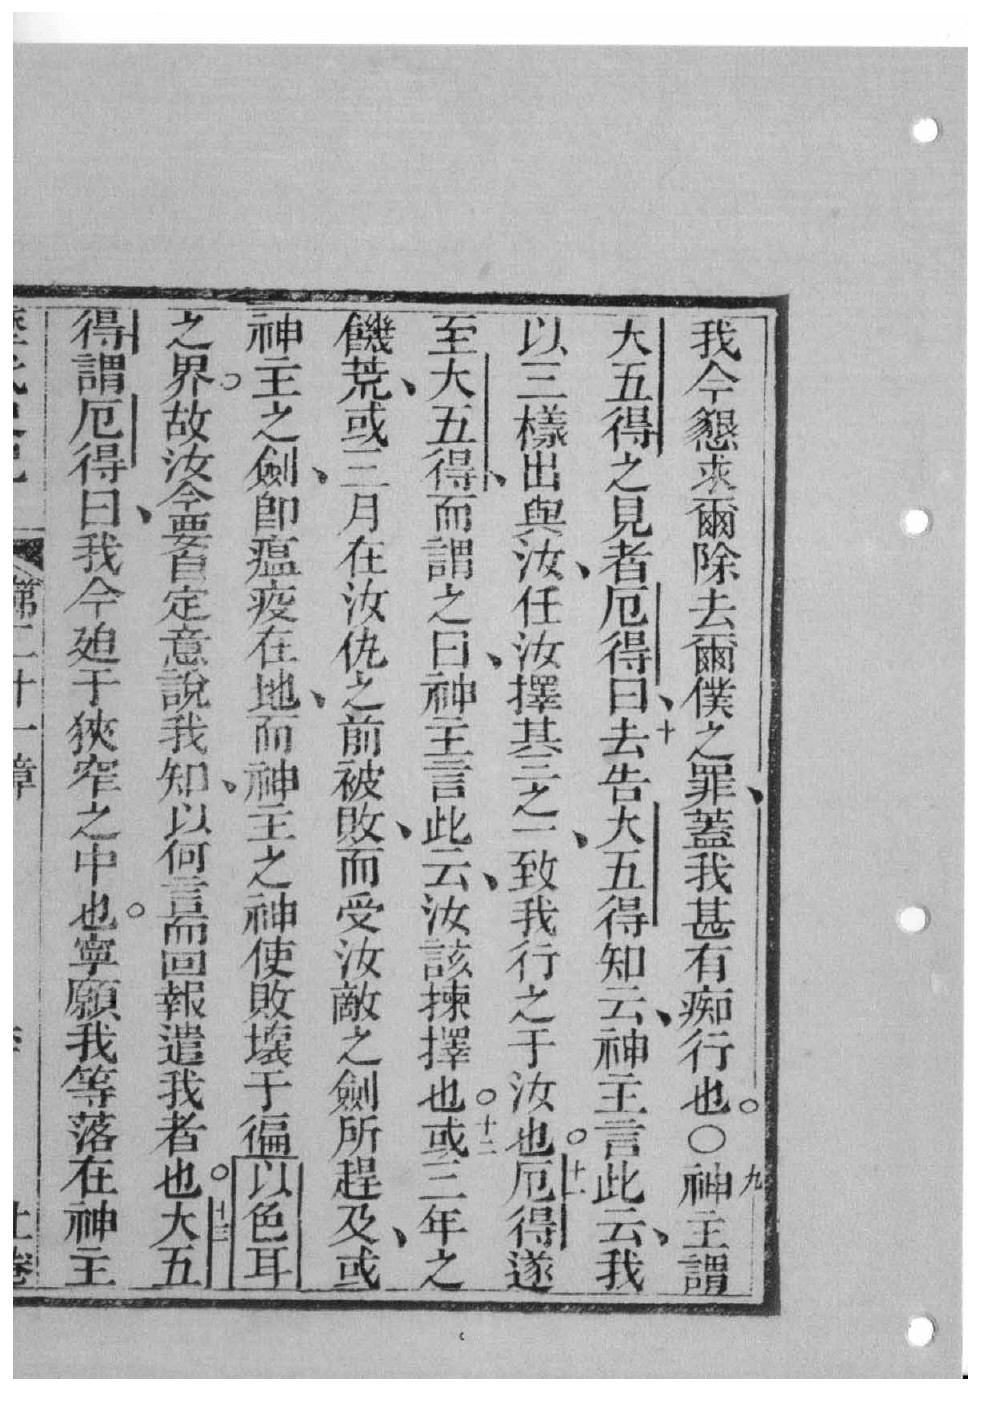 我今懇求爾除去爾僕之罪、蓋我甚有痴行也。○九神主謂
大五得之見者厄得曰、十去告大五得知云、神主言此云、我
以三樣出與汝、任汝擇其三之一、致我行之于汝也。十一厄得遂
至大五得、而謂之曰、神主言此云、汝該揀擇也。十二或三年之
饑荒、或三月在汝仇之前被敗、而受汝敵之劍所趕及、或
神主之劍、即瘟疫在地、而神主之神使敗壞于徧以色耳
之界。故汝今要自定意說我知、以何言而回報遣我者也。十三大五
得謂厄得曰、我今廹于狹窄之中也。寧願我等落在神主
第二十一章 上卷